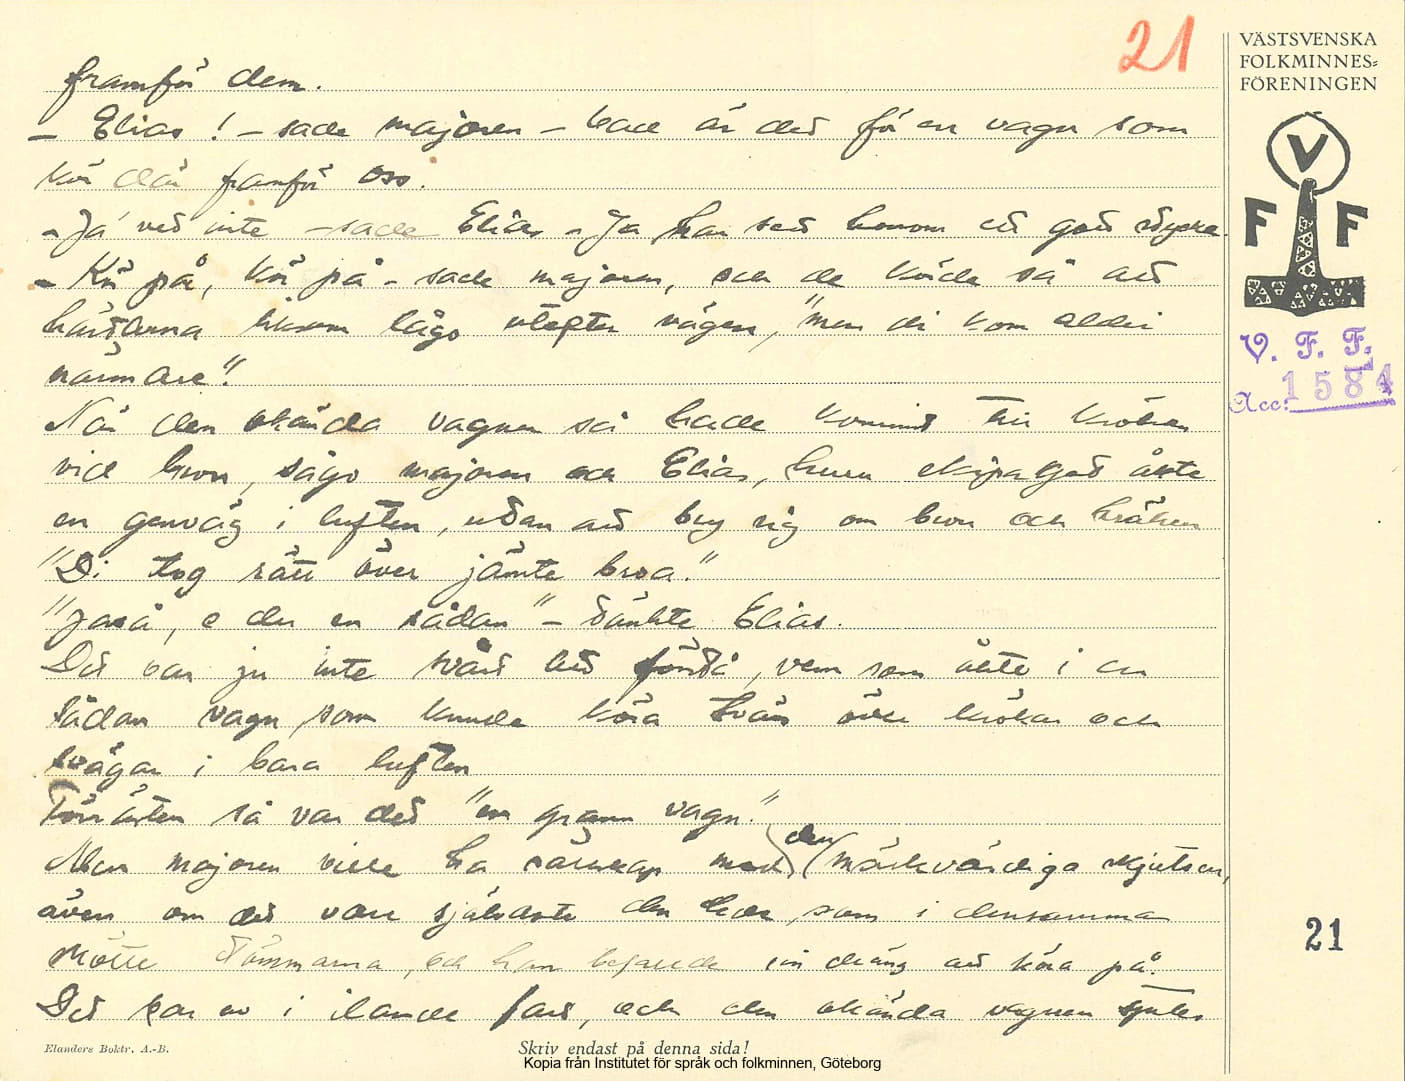 21
VÄSTSVENSKA
FOLKMINNES=
FÖRENINGEN
V
F F
V. F. F.
Acc: 1584
framför dem.
- Elias! - sade majoren - vad är det för en vagn som
kör där framför oss.
- Ja' vet inte - sade Elias - Ja har sett honom ett gott stycke.
- Kör på, kör på - sade majoren, och de körde så att
hästarna liksom lågo utefter vägen, "men di kom aldri
närmare".
När den okända vagnen så hade kommit till kröken
vid bron, sågo majoren och Elias, huru ekipaget åkte
en genväg i luften, utan att bry sig om bron och kröken
"Di tog rätt över jämte broa."
"Jaså, e de en sådan" - tänkte Elias.
Det var ju inte svårt att förstå, vem som åkte i en
sådan vagn, som kunde köra tvärs över krökar och
svägar i bara luften
Förresten så var det "en grann vagn."
Men majoren ville ha sällskap med den märkvärdiga skjutsen,
även om det vore självaste den onde, som i densamma
skötte tömmarna, och han befallde sin dräng att köra på.
Det bar av i ilande fart, och den okända vagnen syntes
21
Elanders Boktr. A.-B.
Skriv endast på denna sida!
Kopia från Institutet för språk och folkminnen, Göteborg